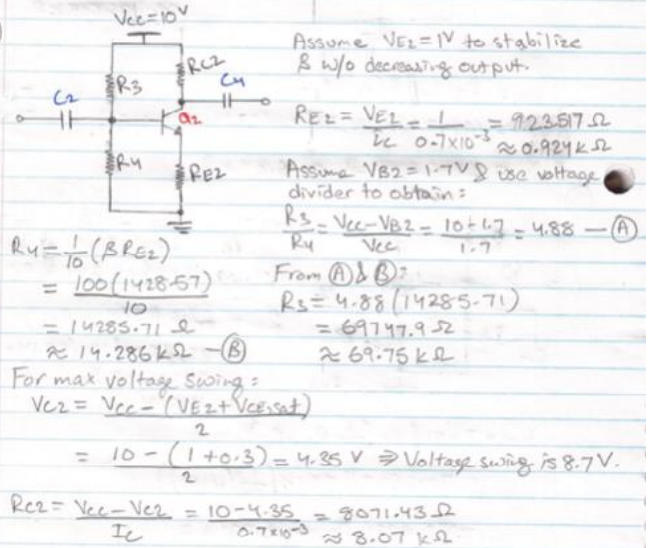 Vcc=10V
R3
RC2
C4
C2
Q2
R4
RE2
Assume VE2=1V to stabilize
& w/o decreasing output.
RE2 = VE2/Ic = 1/0.7x10⁻³ = 923.517 Ω
≈ 0.924 kΩ
Assume VB2=1.7V & use voltage
divider to obtain:
R3/R4 = Vcc-VB2/Vcc = 10-1.7/1.7 = 4.88 — (A)
R4 = 1/10 (βRE2)
= 100(1428.57)/10
= 14285.71 Ω
≈ 14.286 kΩ — (B)
From (A) & (B):
R3 = 4.88(14285.71)
= 69747.9 Ω
≈ 69.75 kΩ
For max voltage swing:
VC2 = Vcc - (VE2 + VCE,sat)/2
= 10 - (1 + 0.3)/2 = 4.35 V ⇒ Voltage swing is 8.7V.
RC2 = Vcc - VC2/Ic = 10-4.35/0.7x10⁻³ = 8071.43 Ω
≈ 8.07 kΩ